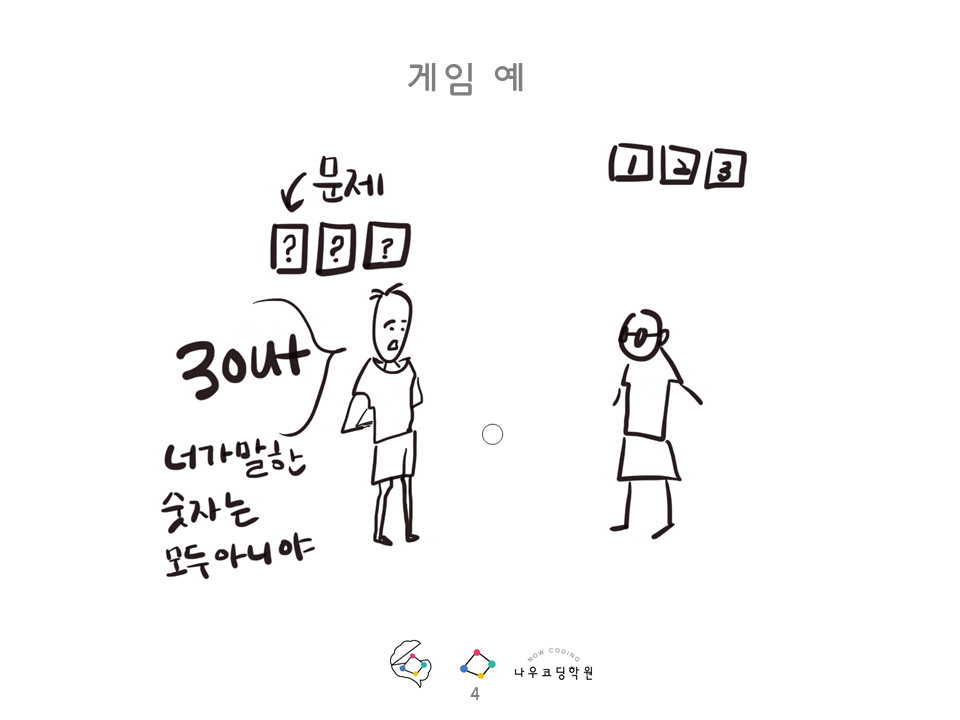 게임 예
문제
? ? ?
1 2 3
3out
너가말한
숫자는
모두아니야
NOW CODING
나우코딩학원
4